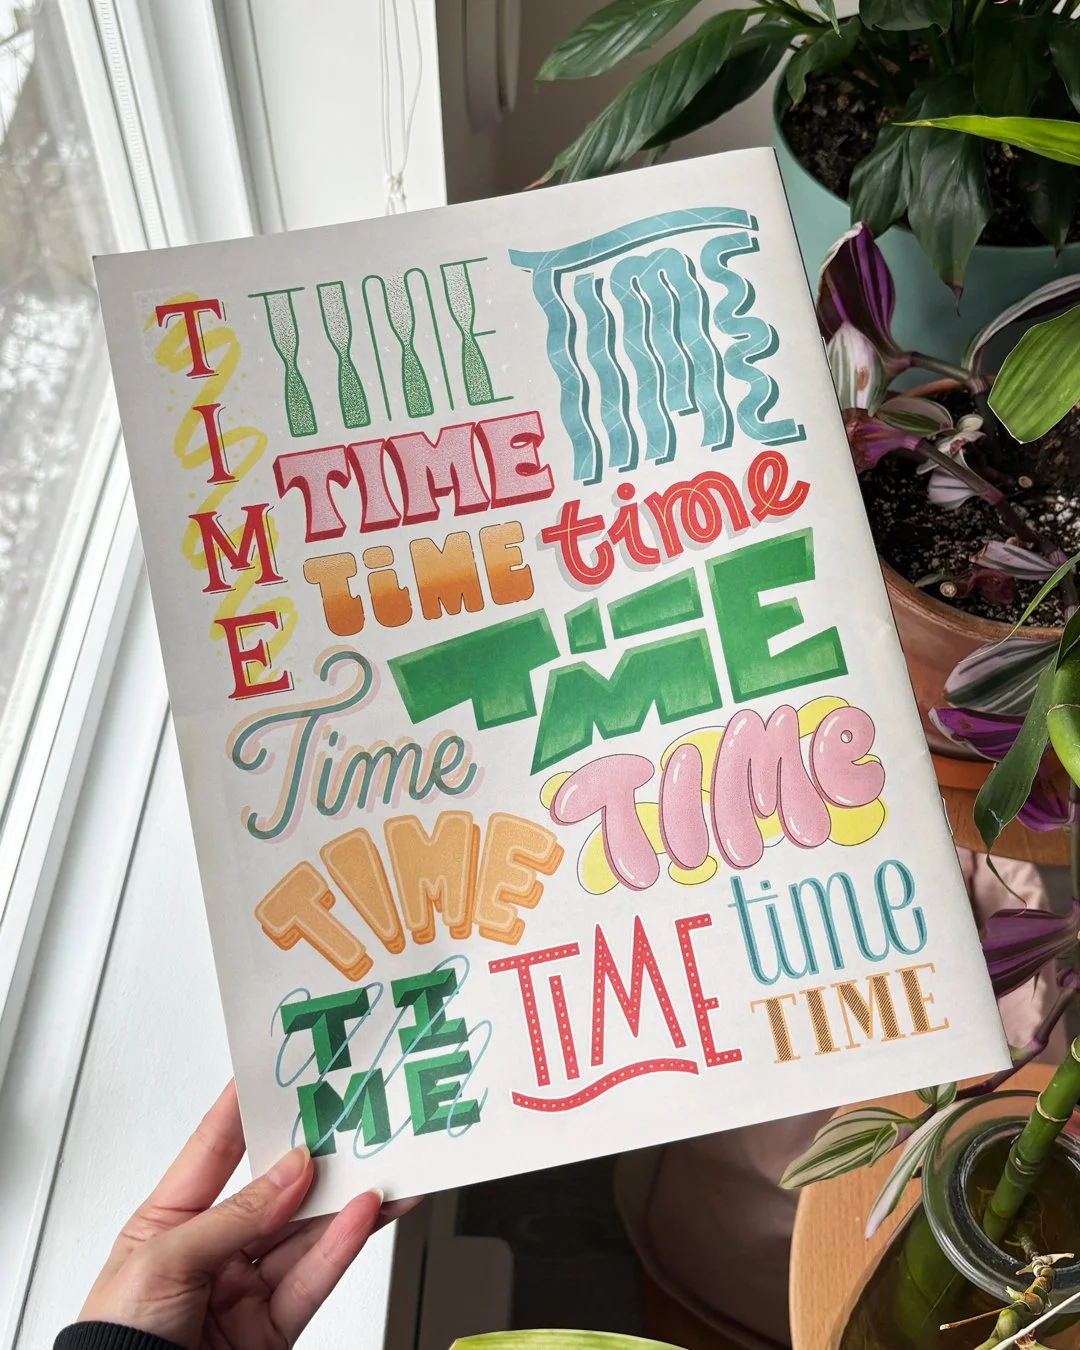 TIME
TIME
TIME
TIME
time
TiME
TIME
Time
TIMe
TIME
time
TIME
TIME
TI
ME